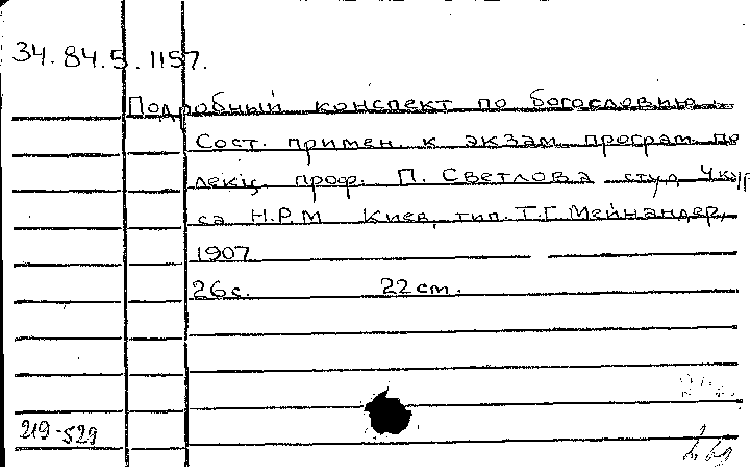 34.84.5.1157.
Подробный конспект по богословию.
Сост. примен. к экзам. програм. по
лекц. проф. П. Светлова студ. 4 кур
са Н.Р.М Киев, тип. Т.Г. Мейнандер,
1907
26 с. 22 cm.
219-529